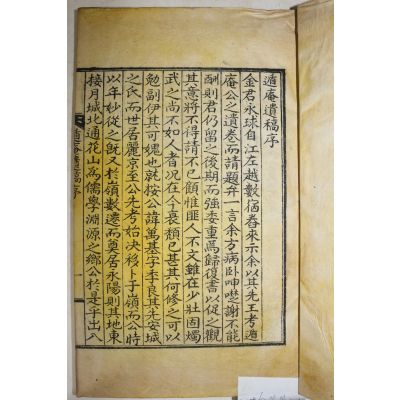 遁庵遺稿序
金君永球自江左越數宿舂來示余以其先王考遁
庵公之遺卷而請題弁一言余方病臥呻囈謝不能
酬則君仍留之後期而強委重焉歸復書以促之觀
其意將不得請不已顧惟匪人不文雖在少壯固燭
武之尚不如人者况在今衰頹已甚其何修之可以
勉副伊其可媿也就按公諱萬其字季良其先安城
之氏而世居麗京至公先考始决移卜于嶺而公時
以年妙從之旣又於嶺數遷而奠居永陽則其地東
接月城北通花山爲儒學淵源之鄕公於是乎出入
遁庵遺稿序
一